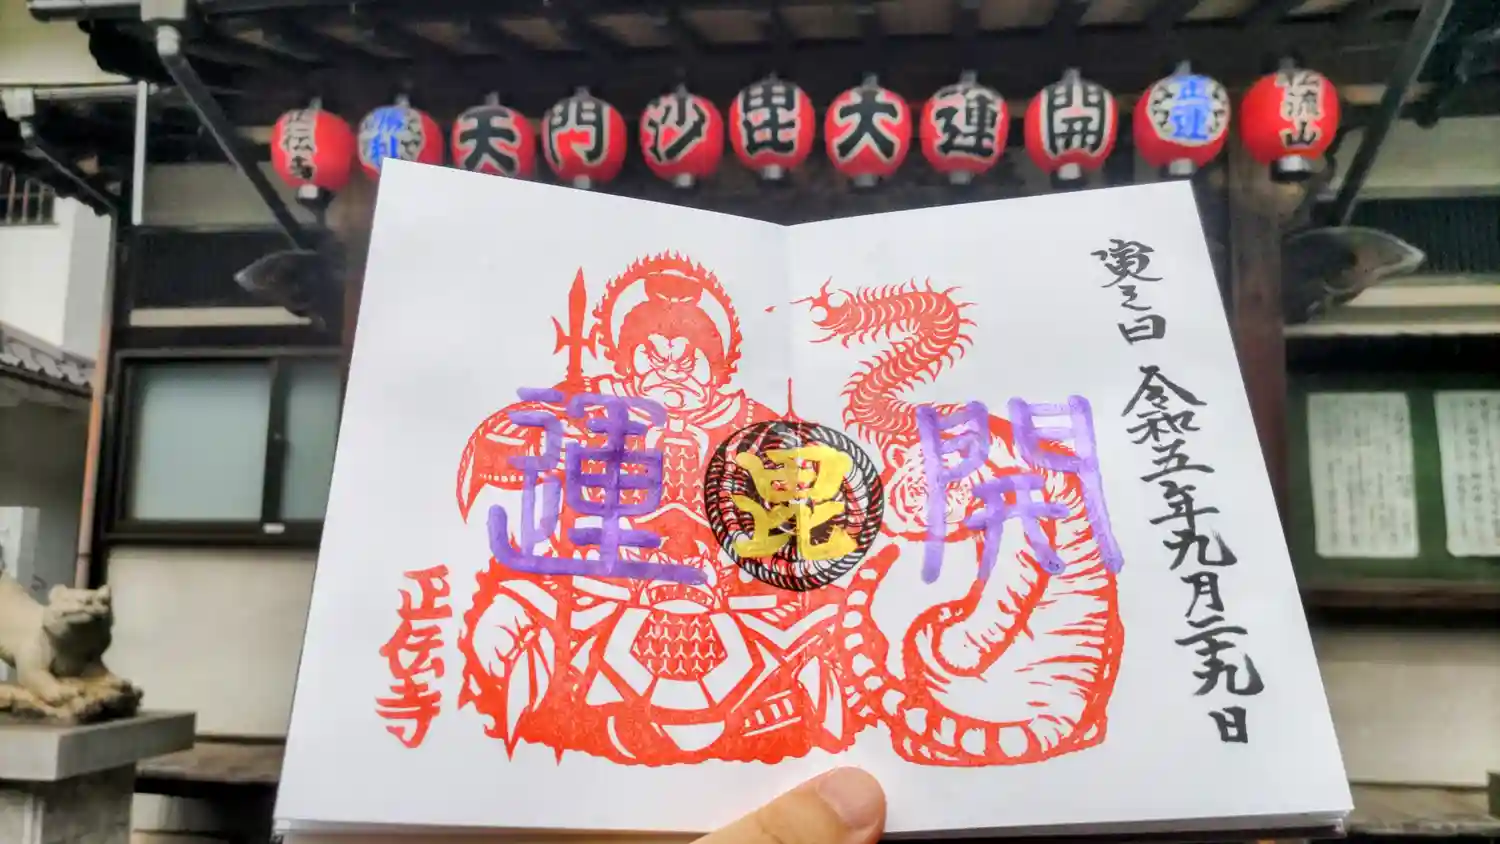 正伝寺
勝利
天
門
沙
毘
大
運
開
正運
仏流山
寅之日
令和五年九月二十九日
開
毘
運
正伝寺